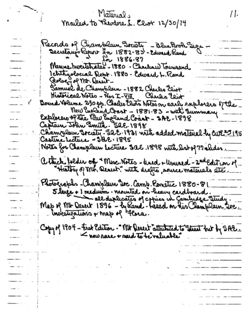 Materials
11.
Mailed to Theodore L. Eliot 12/30/74
Records of Champlain Society - Blue Book Page
Secretary Report for 1882-83 - Edward Rand
" " in 1886-87
Marine Invertebrates - 1880 - Charles Townsend
Ichthyological Dept. 1880 - Edward L. Rand
Geology of Mt Desert
Samuel de Champlain - 1882 Charles Eliot
Historical Notes - Part I-VIII, Charles Eliot
Bound Volume 330 pp. Charles Eliot's Notes on early explorers of the
New England Coast - 181-83 - with Summary
Explorers of the New England Coast - SAE, 1898
Captain John Smith - SAE 1898
Champlain Society - SAE, 1931 with added material by
Castine Lecture - SAE, 1895
Notes for Champlain Lecture SAE 1898 with list of 77 slides.
A thick folder of "More Notes" - used + unused - 2nd Edition of
"History of Mt. Desert" with drafts, source materials etc.
Photographs - Champlain Soc. Camp Pemetic 1880-81
5 large + 1 medium - mounted on heavy cardboard
all duplicates of copies in Cambridge Study
Map of Mt Desert 1896 - by Rand - based on his Champlain Soc.
Investigations + map of Flora.
Copy of 1904 - first Edition - "Mt Desert" attributed to Street but by SAE
now rare + said to be "valuable"